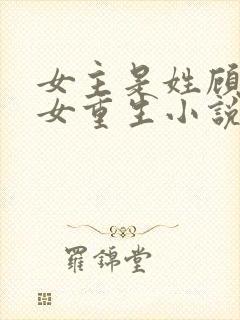 女主是姓顾
女重生小說
羅錦堂